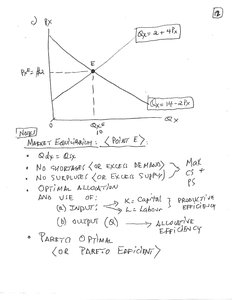 c) Px
Qx = 2 + 4Px
E
Px^E = $2
Qx = 14 - 2Px
0
Qx^E
10
Qx
NOTE:
MARKET EQUILIBRIUM: <POINT E>
• Qdx = Qsx
• NO SHORTAGES <OR EXCESS DEMAND>
• NO SURPLUSES <OR EXCESS SUPPLY>
MAX
CS +
PS
• OPTIMAL ALLOCATION
AND USE OF:
(a) INPUT: K = Capital
L = Labour
PRODUCTIVE
EFFICIENCY
(b) OUTPUT (Q) → ALLOCATIVE
EFFICIENCY
• PARETO OPTIMAL
<OR PARETO EFFICIENT>